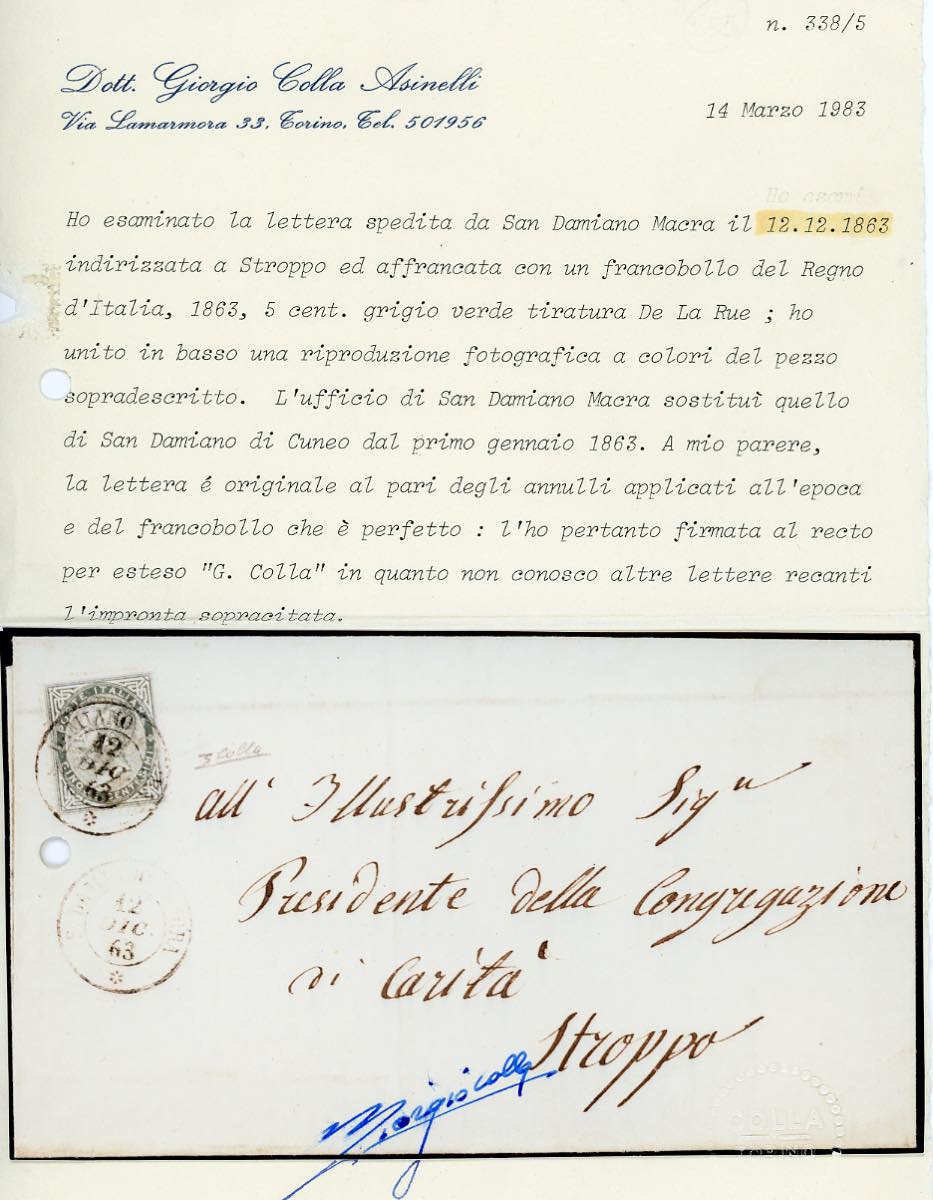 n. 338/5
Dott. Giorgio Colla Asinelli
Via Lamarmora 33, Torino, Tel. 501956
14 Marzo 1983
Ho esaminato la lettera spedita da San Damiano Macra il 12.12.1863
indirizzata a Stroppo ed affrancata con un francobollo del Regno
d'Italia, 1863, 5 cent. grigio verde tiratura De La Rue ; ho
unito in basso una riproduzione fotografica a colori del pezzo
sopradescritto. L'ufficio di San Damiano Macra sostituì quello
di San Damiano di Cuneo dal primo gennaio 1863. A mio parere,
la lettera é originale al pari degli annulli applicati all'epoca
e del francobollo che è perfetto : l'ho pertanto firmata al recto
per esteso "G. Colla" in quanto non conosco altre lettere recanti
l'impronta sopracitata.
12
DIC
63
G Colla
all' Illustrissimo Sig.r
Presidente della Congregazione
di Carità
Stroppo
12
DIC.
63
Giorgio Colla
COLLA
TORINO